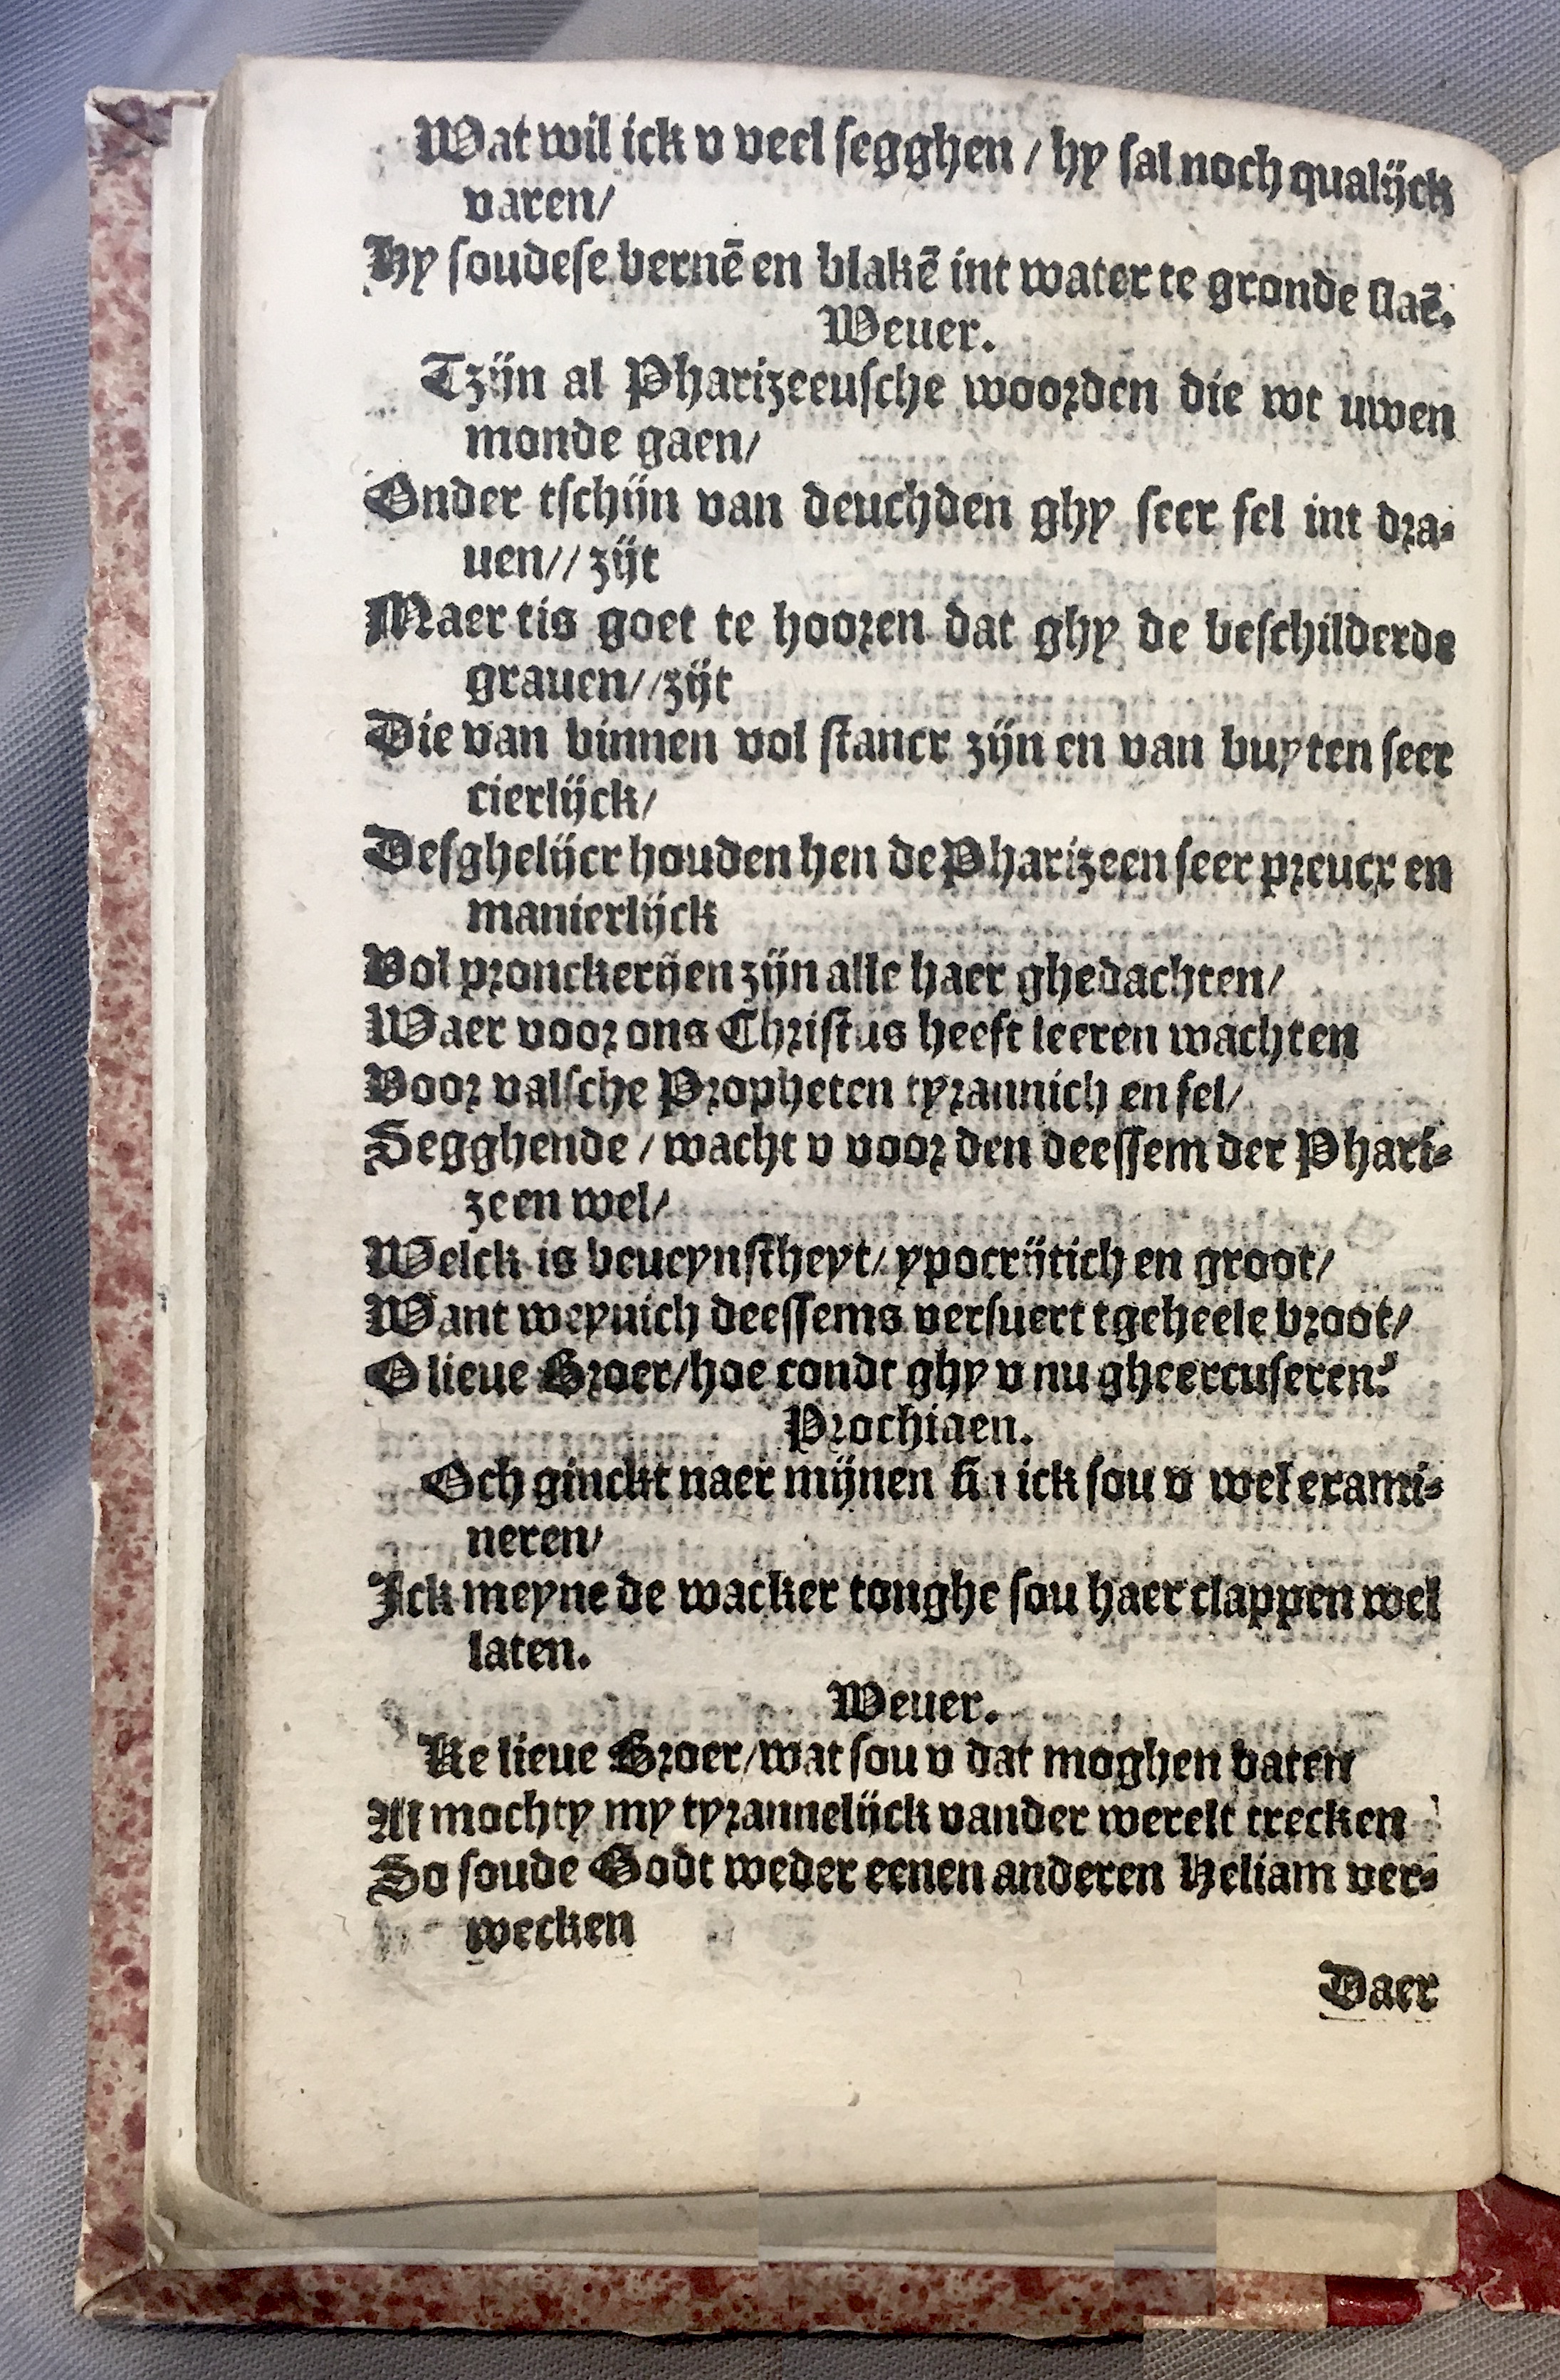 Wat wil ick v veel segghen / hy sal noch qualijck
varen/
Hy soudese bernē en blakē int water te gronde slaē.
Weuer.
Tzijn al Pharizeeusche woorden die wt uwen
monde gaen/
Onder tschijn van deuchden ghy seer fel int dra-
uen// zijt
Maer tis goet te hooren dat ghy de beschilderde
grauen//zijt
Die van binnen vol stancx zijn en van buyten seer
cierlijck/
Desghelijcx houden hen de Pharizeen seer preucx en
manierlijck
Vol pronckerijen zijn alle haer ghedachten/
Waer voor ons Christus heeft leeren wachten
Voor valsche Propheten tyrannich en fel/
Segghende / wacht v voor den deessem der Phari-
zeen wel/
Welck is beueynstheyt/ ypocrijtich en groot/
Want weynich deessems versuert tgeheele broot/
O lieue Broer/hoe condt ghy v nu gheexcuseren?
Prochiaen.
Och ginckt naer mijnen ick sou v wel exami-
neren/
Ick meyne de wacker tonghe sou haer clappen wel
laten.
Weuer.
Ke lieue Broer/wat sou v dat moghen baten
Al mochty my tyrannelijck vander werelt trecken
So soude Godt weder eenen anderen Heliam ver-
wecken
Daer